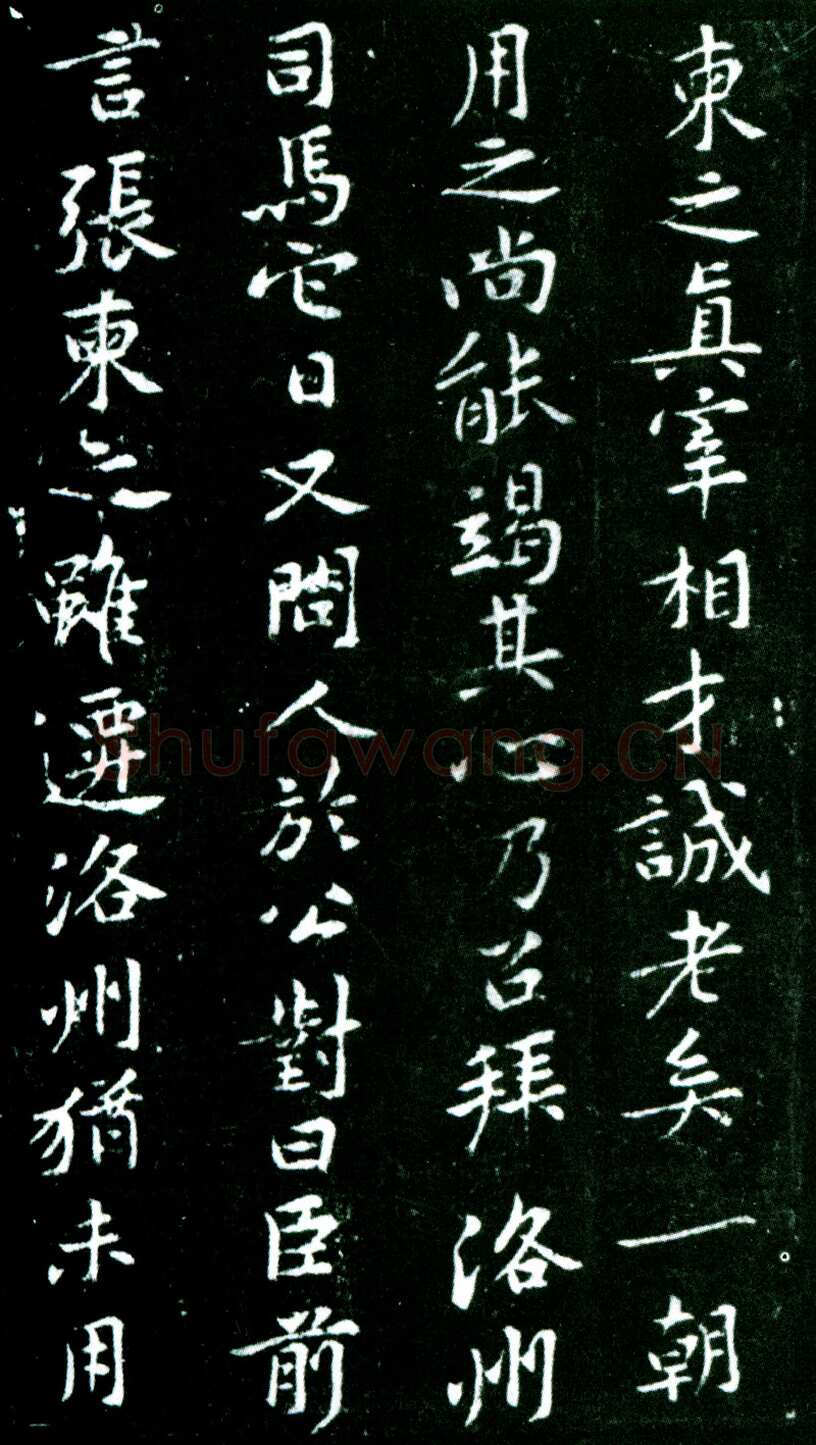 柬之真宰相才誠老矣一朝
用之尚能竭其心乃召拜洛州
司馬它日又問人於公對曰臣前
言張柬之雖遷洛州猶未用
Shufawang.CN